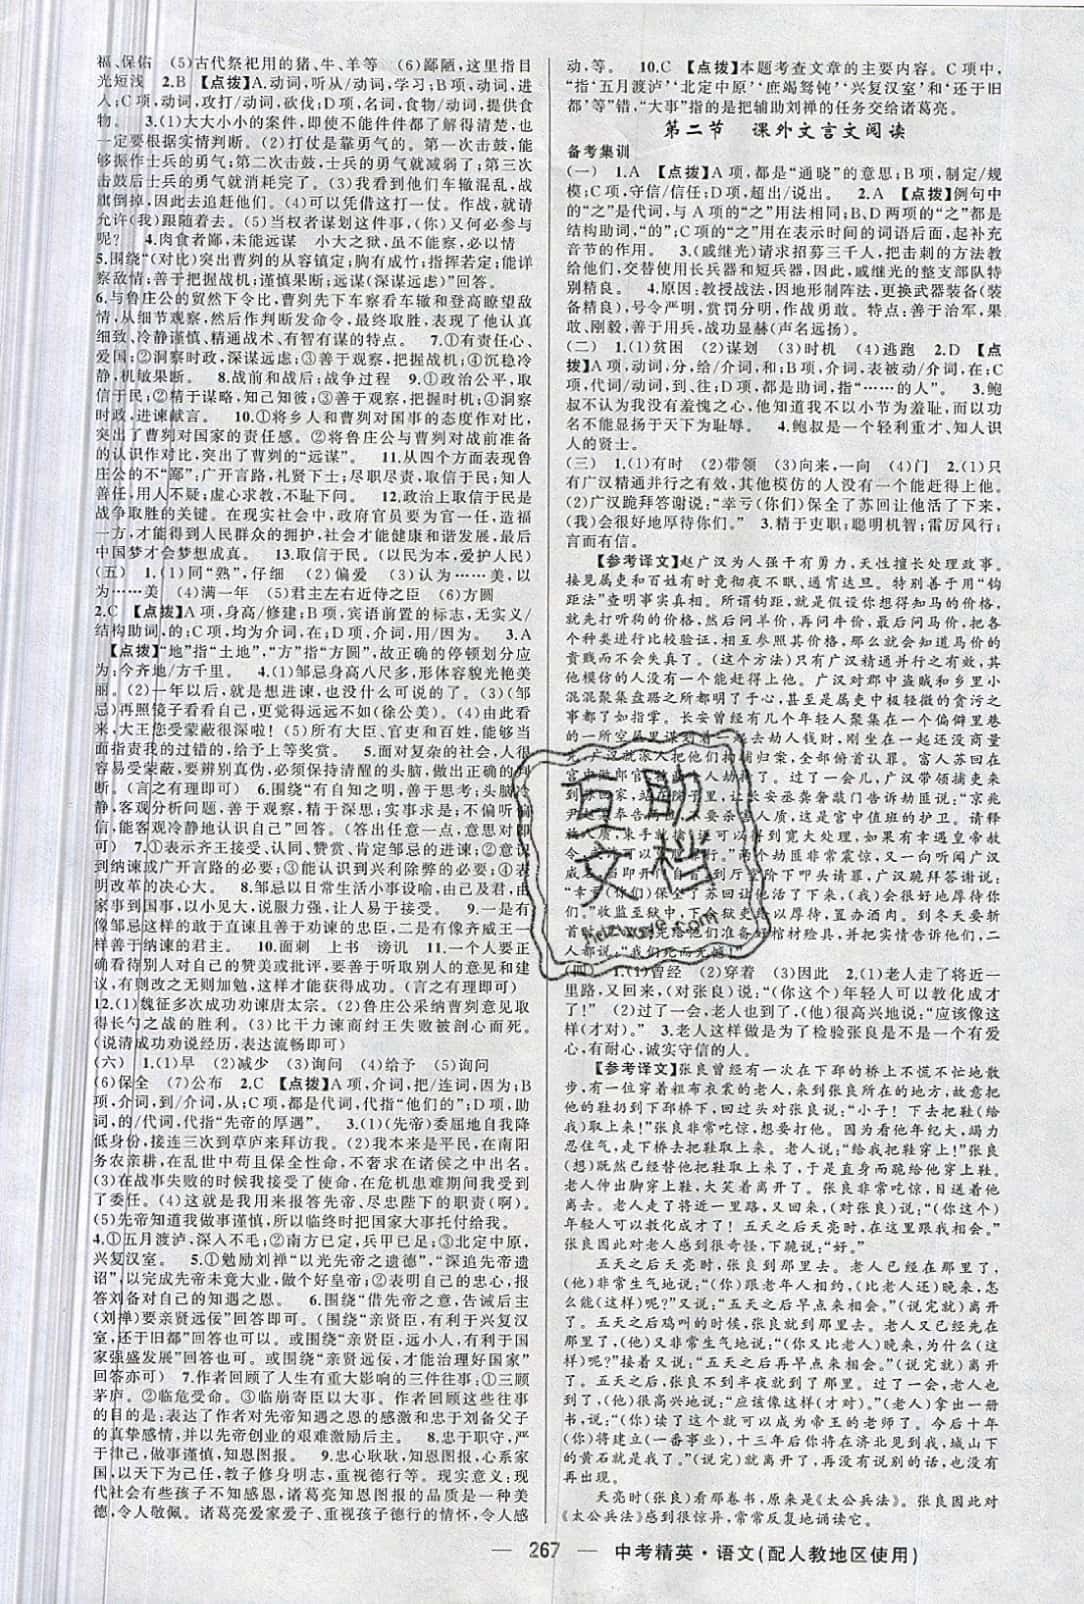 福、保佑　(5)古代祭祀用的猪、牛、羊等　(6)鄙陋,这里指目
光短浅　2.B　【点拨】A.动词,听从/动词,学习;B项,动词,进
入;C项,动词,攻打/动词,砍伐;D项,名词,食物/动词,提供食
物。　3.(1)大大小小的案件,即使不能件件都了解得清楚,也
一定要根据实情判断。(2)打仗是靠勇气的。第一次击鼓,能
够振作士兵的勇气;第二次击鼓,士兵的勇气就减弱了;第三次
击鼓后士兵的勇气就消耗完了。(3)我看到他们车辙混乱,战
旗倒掉,因此去追赶他们。(4)可以凭借这打一仗。作战,就请
允许(我)跟随着去。(5)当权者谋划这件事,(你)又何必参与
呢?　4.肉食者鄙,未能远谋　小大之狱,虽不能察,必以情
5.围绕“(对比)突出曹刿的从容镇定;胸有成竹;指挥若定;能详
察敌情;善于把握战机;谨慎果断;远谋(深谋远虑)”回答。
6.与鲁庄公的贸然下令比,曹刿先下车察看车辙和登高瞭望敌
情,从细节观察,然后作判断发命令,最终取胜,表现了他认真
细致、冷静谨慎、精通战术、有智有谋的特点。　7.①有责任心、
爱国;②洞察时政,深谋远虑;③善于观察,把握战机;④沉稳冷
静,机敏果断。　8.战前和战后;战争过程　9.①政治公平,取
信于民;②精于谋略,知己知彼;③善于观察,把握时机;④洞察
时政,进谏献言。　10.①将乡人和曹刿对国事的态度作对比,
突出了曹刿对国家的责任感。②将鲁庄公与曹刿对战前准备
的认识作对比,突出了曹刿的“远谋”。　11.从四个方面表现鲁
庄公的不“鄙”;广开言路,礼贤下士;尽职尽责,取信于民;知人
善任,用人不疑;虚心求教,不耻下问。　12.政治上取信于民是
战争取胜的关键。在现实社会中,政府官员要为官一任,造福
一方,才能得到人民群众的拥护,社会才能健康和谐发展,最后
中国梦才会梦想成真。　13.取信于民。(以民为本,爱护人民)
(五)　1.(1)同“熟”,仔细　(2)偏爱　(3)认为……美,以
为……美　(4)满一年　(5)君主左右近侍之臣　(6)方圆
2.C　【点拨】A项,身高/修建;B项,宾语前置的标志,无实义/
结构助词,的;C项,均为介词,在;D项,介词,用/因为。　3.A
【点拨】“地”指“土地”,“方”指“方圆”,故正确的停顿划分应
为:今齐地/方千里。　4.(1)邹忌身高八尺多,形体容貌光艳美
丽。(2)一年以后,就是想进谏,也没什么可说的了。(3)(邹
忌)再照镜子看看自己,更觉得远远不如(徐公美)。(4)由此看
来,大王您受蒙蔽很深啦!(5)所有大臣、官吏和百姓,能够当
面指责我的过错的,给予上等奖赏。　5.面对复杂的社会,人很
容易受蒙蔽,要辨别真伪,必须保持清醒的头脑,做出正确的判
断。(言之有理即可)　6.围绕“有自知之明,善于思考;头脑冷
静,客观分析问题,善于观察,精于深思;实事求是;不偏听偏
信,能客观冷静地认识自己”回答。(答出任意一点,意思对即
可)　7.①表示齐王接受、认同、赞赏、肯定邹忌的进谏;②意识
到纳谏或广开言路的必要;③能认识到兴利除弊的必要;④表
明改革的决心大。　8.邹忌以日常生活小事设喻,由己及君,由
家事到国事,以小见大,说服力强,让人易于接受。　9.一是有
像邹忌这样的敢于直谏且善于劝谏的忠臣,二是有像齐威王一
样善于纳谏的君主。　10.面刺　上书　谤讥　11.一个人要正
确看待别人对自己的赞美或批评,要善于听取别人的意见和建
议,有则改之无则加勉,这样才能获得成功。(言之有理即可)
12.(1)魏征多次成功劝谏唐太宗。(2)鲁庄公采纳曹刿意见取
得长勺之战的胜利。(3)比干力谏商纣王失败被剖心而死。
(说清成功劝说经历,表达流畅即可)
(六)　1.(1)早　(2)减少　(3)询问　(4)给予　(5)询问
(6)保全　(7)公布　2.C　【点拨】A项,介词,把/连词,因为;B
项,介词,到/介词,从;C项,都是代词,代指“他们的”;D项,助
词,的/代词,代指“先帝的厚遇”。　3.(1)(先帝)委屈地自我降
低身份,接连三次到草庐来拜访我。(2)我本来是平民,在南阳
务农亲耕,在乱世中苟且保全性命,不奢求在诸侯之中出名。
(3)在战事失败的时候我接受了任命,在危机患难期间我受到
了委任。(4)这就是我用来报答先帝、尽忠陛下的职责(啊)。
(5)先帝知道我做事谨慎,所以临终时把国家大事托付给我。
4.①五月渡泸,深入不毛;②南方已定,兵甲已足;③北定中原,
兴复汉室。　5.①勉励刘禅“以光先帝之遗德”,“深追先帝遗
诏”,以完成先帝未竟大业,做个好皇帝;②表明自己的忠心,报
答刘备对自己的知遇之恩。　6.围绕“借先帝之意,告诫后主
(刘禅)要亲贤远佞”回答即可。(或围绕“亲贤臣,有利于兴复汉
室,还于旧都”回答也可。或围绕“亲贤臣,远小人,有利于国
家强盛发展”回答也可。或围绕“亲贤远佞,才能治理好国家”
回答亦可)　7.作者回顾了人生有重大影响的三件往事:①三顾
茅庐。②临危受命。③临崩寄臣以大事。作者回顾这些往事
的目的是:表达了作者对先帝知遇之恩的感激和忠于刘备父子
的真挚感情,并以先帝创业的艰难激励后主。　8.忠于职守,严
于律己,做事谨慎,知恩图报。　9.忠心耿耿,知恩图报,心系家
国,以天下为己任,教子修身明志,重视德行等。现实意义:现
代社会有些孩子不知感恩,诸葛亮知恩图报的品质是一种美
德,令人敬佩。诸葛亮爱家爱子、重视孩子德行的情怀,令人感
动,等。　10.C　【点拨】本题考查文章的主要内容。C项中,
“指‘五月渡泸’‘北定中原’‘庶竭驽钝’‘兴复汉室’和‘还于旧
都’等”错,“大事”指的是把辅助刘禅的任务交给诸葛亮。
第二节　课外文言文阅读
备考集训
(一)　1.A　【点拨】A项,都是“通晓”的意思;B项,制定/规
模;C项,守信/信任;D项,超出/说出。　2.A　【点拨】例句中
的“之”是代词,与A项的“之”用法相同;B、D两项的“之”都是
结构助词,“的”;C项的“之”用在表示时间的词语后面,起补充
音节的作用。　3.(戚继光)请求招募三千人,把击刺的方法教
给他们,交替使用长兵器和短兵器,因此,戚继光的整支部队特
别精良。　4.原因:教授战法,因地形制阵法,更换武器装备(装
备精良),号令严明,赏罚分明,作战勇敢。特点:善于治军,果
敢、刚毅,善于用兵,战功显赫(声名远扬)。
(二)　1.(1)贫困　(2)谋划　(3)时机　(4)逃跑　2.D　【点
拨】A项,动词,分,给/介词,和;B项,介词,表被动/介词,在;C
项,代词/动词,到、往;D项,都是助词,指“……的人”。　3.鲍
叔不认为我没有羞愧之心,他知道我不以小节为羞耻,而以功
名不能显扬于天下为耻辱。　4.鲍叔是一个轻利重才、知人识
人的贤士。
(三)　1.(1)有时　(2)带领　(3)向来,一向　(4)门　2.(1)只
有广汉精通并行之有效,其他模仿的人没有一个能赶得上他。
(2)广汉跪拜答谢说:“幸亏(你们)保全了苏回让他活了下来,
(我)会很好地厚待你们。”　3.精于吏职;聪明机智;雷厉风行;
言而有信。
【参考译文】赵广汉为人强干有勇力,天性擅长处理政事。
接见属吏和百姓有时竟彻夜不眠、通宵达旦。特别善于用“钩
距法”查明事实真相。所谓钩距,就是假设你想得知马的价格,
就先打听狗的价格,然后问羊价,再问牛价,最后问马价,把各
个种类进行比较验证,相互参照其价格,那么就会知道马价的
贵贱而不会失真了。(这个方法)只有广汉精通并行之有效,其
他模仿的人没有一个能赶得上他。广汉对郡中盗贼和乡里小
混混聚集盘踞之所都明了于心,甚至是属吏中极轻微的贪污之
事都了如指掌。长安曾经有几个年轻人聚集在一个偏僻里巷
的一所空屋里谋划着一起去劫人钱财,刚坐在一起还没商量
完,广汉就派人把他们拘捕归案,全部俯首认罪。富人苏回在
宫中做郎官
(四)　1.(1)曾经　(2)穿着　(3)因此　2.(1)老人走了将近一
里路,又回来,(对张良)说:“(你这个)年轻人可以教化成才
了!”　(2)过了一会,老人也到了,(他)很高兴地说:“应该像这
样(才对)。”　3.老人这样做是为了检验张良是不是一个有爱
心,有耐心,诚实守信的人。
【参考译文】张良曾经有一次在下邳的桥上不慌不忙地散
步,有一位穿着粗布衣裳的老人,来到张良所在的地方,故意把
他的鞋扔到下邳桥下,回过头对张良说:“小子!下去把鞋(给
我)取上来!”张良非常吃惊,想要打他。因为看他年纪大,竭力
忍住气,走下桥去把鞋取上来。老人说:“给我把鞋穿上!”张良
(想)既然已经替他把鞋取上来了,于是直身而跪给他穿上鞋。
老人伸出脚穿上鞋,大笑着离开了。张良非常吃惊,目送着他
离开。老人走了将近一里路,又回来,(对张良)说:“(你这个)
年轻人可以教化成才了!五天之后天亮时,在这里跟我相会。”
张良因此对老人感到很奇怪,下跪说:“好。”
五天之后天亮时,张良到那里去。老人已经在那里了,
(他)非常生气地说:“(你)跟老年人相约,(比老人还)晚来,怎
么能(这样)呢?”又说:“五天之后早点来相会。”(说完就)离开
了。五天之后鸡叫的时候,张良就到那里去。老人又已经先在
那里了,(他)又非常生气地说:“(你又比老人)晚来,怎么能(这
样)呢?”接着又说:“五天之后再早点来相会。”(说完就)离开
了。五天之后,张良不到半夜就到了那里。过了一会,老人也
到了,(他)很高兴地说:“应该像这样(才对)。”(老人)拿出一册
书,说:“(你)读了这个就可以成为帝王的老师了。今后十年
(你)将建立(一番事业),十三年后你将在济北见到我,城山下
的黄石就是我了。”(说完)就离开了,再没有说别的话,也没有
再出现。
天亮时(张良)看那卷书,原来是《太公兵法》。张良因此对
《太公兵法》感到很惊异,常常反复地诵读它。
互助
文档
— 267 —　中考精英·语文(配人教地区使用)